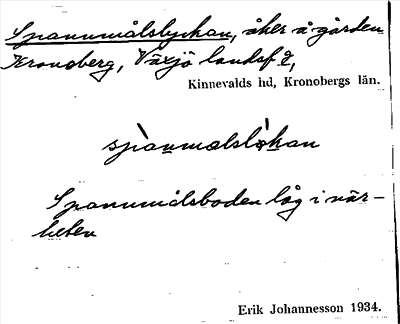 Spannmålslyckan, åker å gården
Kronoberg, Växjö landsf g,
Kinnevalds hd, Kronobergs län.
spànmalslòkan
Spannmålsboden låg i när-
heten
Erik Johannesson 1934.